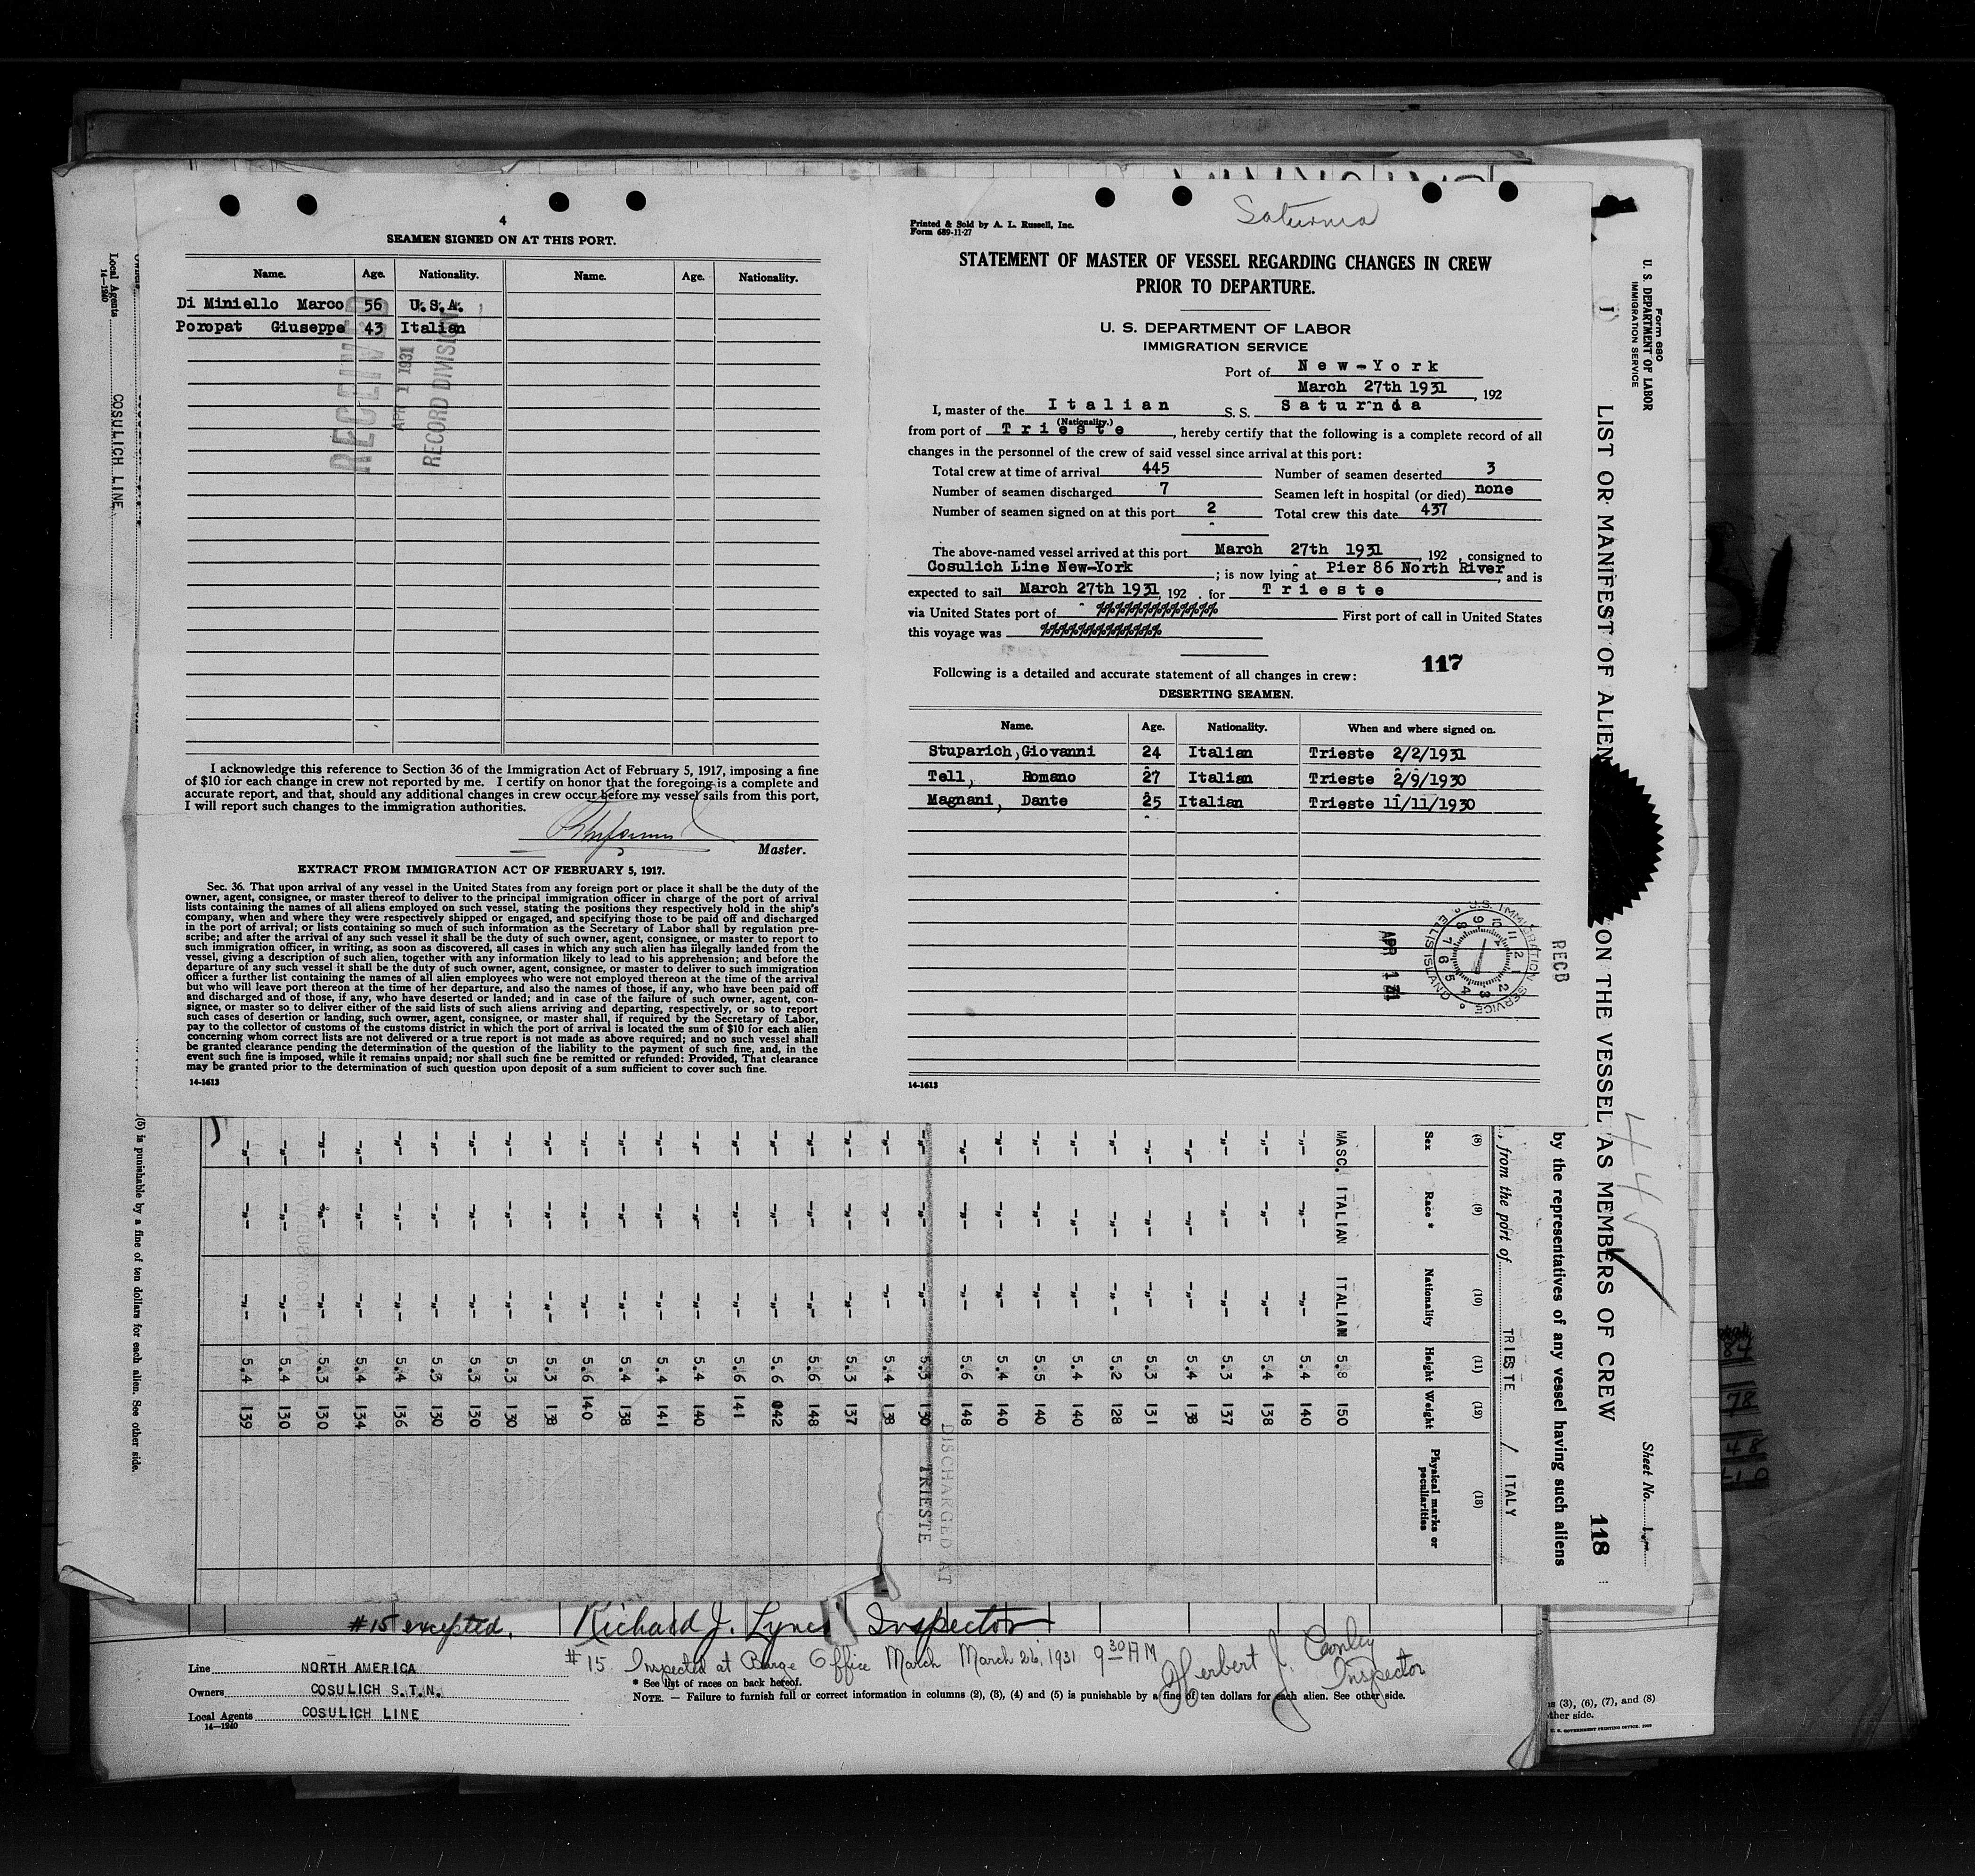 4
SEAMEN SIGNED ON AT THIS PORT.
Name. Age. Nationality. Name. Age. Nationality.
Di Miniello Marco 56 U.S.A.
Poropat Giuseppe 43 Italian
RECEIVED
APR 1 1931
RECORD DIVISION
I acknowledge this reference to Section 36 of the Immigration Act of February 5, 1917, imposing a fine
of $10 for each change in crew not reported by me. I certify on honor that the foregoing is a complete and
accurate report, and that, should any additional changes in crew occur before my vessel sails from this port,
I will report such changes to the immigration authorities.
Master.
EXTRACT FROM IMMIGRATION ACT OF FEBRUARY 5, 1917.
Sec. 36. That upon arrival of any vessel in the United States from any foreign port or place it shall be the duty of the
owner, agent, consignee, or master thereof to deliver to the principal immigration officer in charge of the port of arrival
lists containing the names of all aliens employed on such vessel, stating the positions they respectively hold in the ship's
company, when and where they were respectively shipped or engaged, and specifying those to be paid off and discharged
in the port of arrival; or lists containing so much of such information as the Secretary of Labor shall by regulation pre-
scribe; and after the arrival of any such vessel it shall be the duty of such owner, agent, consignee, or master to report to
such immigration officer, in writing, as soon as discovered, all cases in which any such alien has illegally landed from the
vessel, giving a description of such alien, together with any information likely to lead to his apprehension; and before the
departure of any such vessel it shall be the duty of such owner, agent, consignee, or master to deliver to such immigration
officer a further list containing the names of all alien employees who were not employed thereon at the time of the arrival
but who will leave port thereon at the time of her departure, and also the names of those, if any, who have been paid off
and discharged and of those, if any, who have deserted or landed; and in case of the failure of such owner, agent, con-
signee, or master so to deliver either of the said lists of such aliens arriving and departing, respectively, or so to report
such cases of desertion or landing, such owner, agent, consignee, or master shall, if required by the Secretary of Labor,
pay to the collector of customs of the customs district in which the port of arrival is located the sum of $10 for each alien
concerning whom correct lists are not delivered or a true report is not made as above required; and no such vessel shall
be granted clearance pending the determination of the question of the liability to the payment of such fine, and, in the
event such fine is imposed, while it remains unpaid; nor shall such fine be remitted or refunded: Provided, That clearance
may be granted prior to the determination of such question upon deposit of a sum sufficient to cover such fine.
14-1613
Saturnia
Printed & Sold by A. L. Russell, Inc.
Form 689-11-27
STATEMENT OF MASTER OF VESSEL REGARDING CHANGES IN CREW
PRIOR TO DEPARTURE.
U. S. DEPARTMENT OF LABOR
IMMIGRATION SERVICE
Port of New-York
March 27th 1931, 192
I, master of the Italian S. S. Saturnia
(Nationality.)
from port of Trieste, hereby certify that the following is a complete record of all
changes in the personnel of the crew of said vessel since arrival at this port:
Total crew at time of arrival 445 Number of seamen deserted 3
Number of seamen discharged 7 Seamen left in hospital (or died) none
Number of seamen signed on at this port 2 Total crew this date 437
The above-named vessel arrived at this port March 27th 1931, 192 , consigned to
Cosulich Line New-York ; is now lying at Pier 86 North River, and is
expected to sail March 27th 1931, 192 . for Trieste
via United States port of First port of call in United States
this voyage was
117
Following is a detailed and accurate statement of all changes in crew:
DESERTING SEAMEN.
Name. Age. Nationality. When and where signed on.
Stuparich, Giovanni 24 Italian Trieste 2/2/1931
Tell, Romano 27 Italian Trieste 2/9/1930
Magnani, Dante 25 Italian Trieste 11/11/1930
APR 1 31
U.S. IMMIGRATION SERVICE ELLIS ISLAND
RECD
14-1613
Form 680
U. S. DEPARTMENT OF LABOR
IMMIGRATION SERVICE
LIST OR MANIFEST OF ALIEN ON THE VESSEL AS MEMBERS OF CREW
118
Sheet No. 1
445
by the representatives of any vessel having such aliens
, from the port of TRIESTE / ITALY
(8) (9) (10) (11) (12) (13)
Sex Race * Nationality Height Weight Physical marks or peculiarities
MASC. ITALIAN ITALIAN 5.8 150
-"- -"- -"- 5.4 140
-"- -"- -"- 5.4 138
-"- -"- -"- 5.3 137
-"- -"- -"- 5.4 138
-"- -"- -"- 5.3 131
-"- -"- -"- 5.2 128
-"- -"- -"- 5.4 140
-"- -"- -"- 5.5 140
-"- -"- -"- 5.4 140
-"- -"- -"- 5.6 148
-"- -"- -"- 5.3 130
DISCHARGED AT
TRIESTE
-"- -"- -"- 5.4 138
-"- -"- -"- 5.3 137
-"- -"- -"- 5.6 148
-"- -"- -"- 5.6 042
-"- -"- -"- 5.6 141
-"- -"- -"- 5.4 140
-"- -"- -"- 5.4 141
-"- -"- -"- 5.4 138
-"- -"- -"- 5.6 140
-"- -"- -"- 5.3 138
-"- -"- -"- 5.3 130
-"- -"- -"- 5.3 130
-"- -"- -"- 5.3 130
-"- -"- -"- 5.4 136
-"- -"- -"- 5.4 134
-"- -"- -"- 5.3 130
-"- -"- -"- 5.4 130
-"- -"- -"- 5.4 139
(5) is punishable by a fine of ten dollars for each alien. See other side.
Local Agents COSULICH LINE
14-1240
#15 excepted. Richard J. Lynch Inspector
#15 Inspected at Barge Office March March 26, 1931 9 30 AM Herbert J. Conley
Inspector
* See list of races on back hereof.
NOTE. — Failure to furnish full or correct information in columns (2), (3), (4) and (5) is punishable by a fine of ten dollars for each alien. See other side.
Line NORTH AMERICA
Owners COSULICH S.T.N.
Local Agents COSULICH LINE
14-1240
(3), (6), (7), and (8)
other side.
U. S. GOVERNMENT PRINTING OFFICE